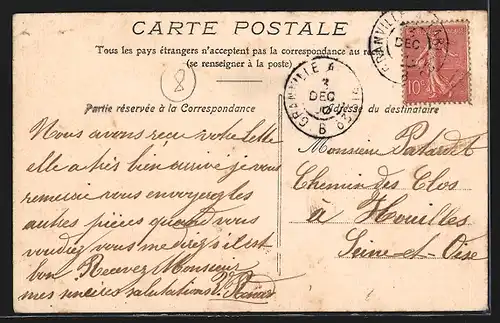 CARTE POSTALE
Tous les pays étrangers n'acceptent pas la correspondance au
(se renseigner à la poste)
Partie réservée à la Correspondance
Adresse du destinataire
GRANVILLE
3
DEC
GRANVILLE A PARIS
3
DEC
B
10
8
Nous avons reçu votre lette
elle a très bien arrivé je vous
remercie vous envoyer les
autres pièces quand vous
voudrez vous me direz s'il est
bon Recevez Monsieur
mes sincères salutations
Monsieur
Chemin des Clos
à Houilles
Seine-et-Oise